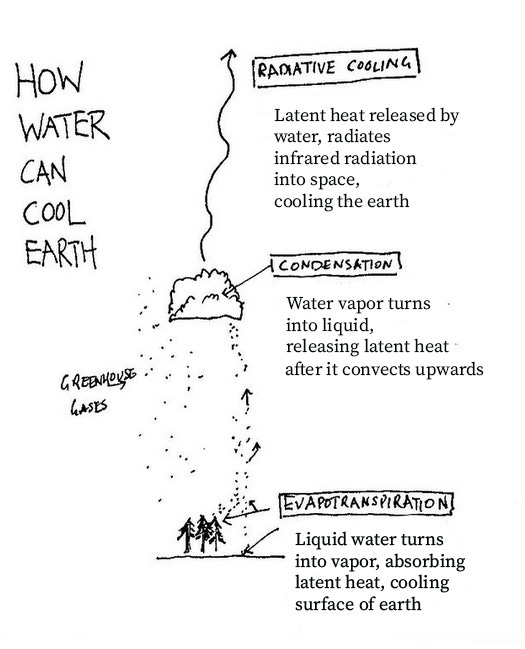 HOW
WATER
CAN
COOL
EARTH
RADIATIVE COOLING
Latent heat released by
water, radiates
infrared radiation
into space,
cooling the earth
CONDENSATION
Water vapor turns
into liquid,
releasing latent heat
after it convects upwards
GREENHOUSE
GASES
EVAPOTRANSPIRATION
Liquid water turns
into vapor, absorbing
latent heat, cooling
surface of earth